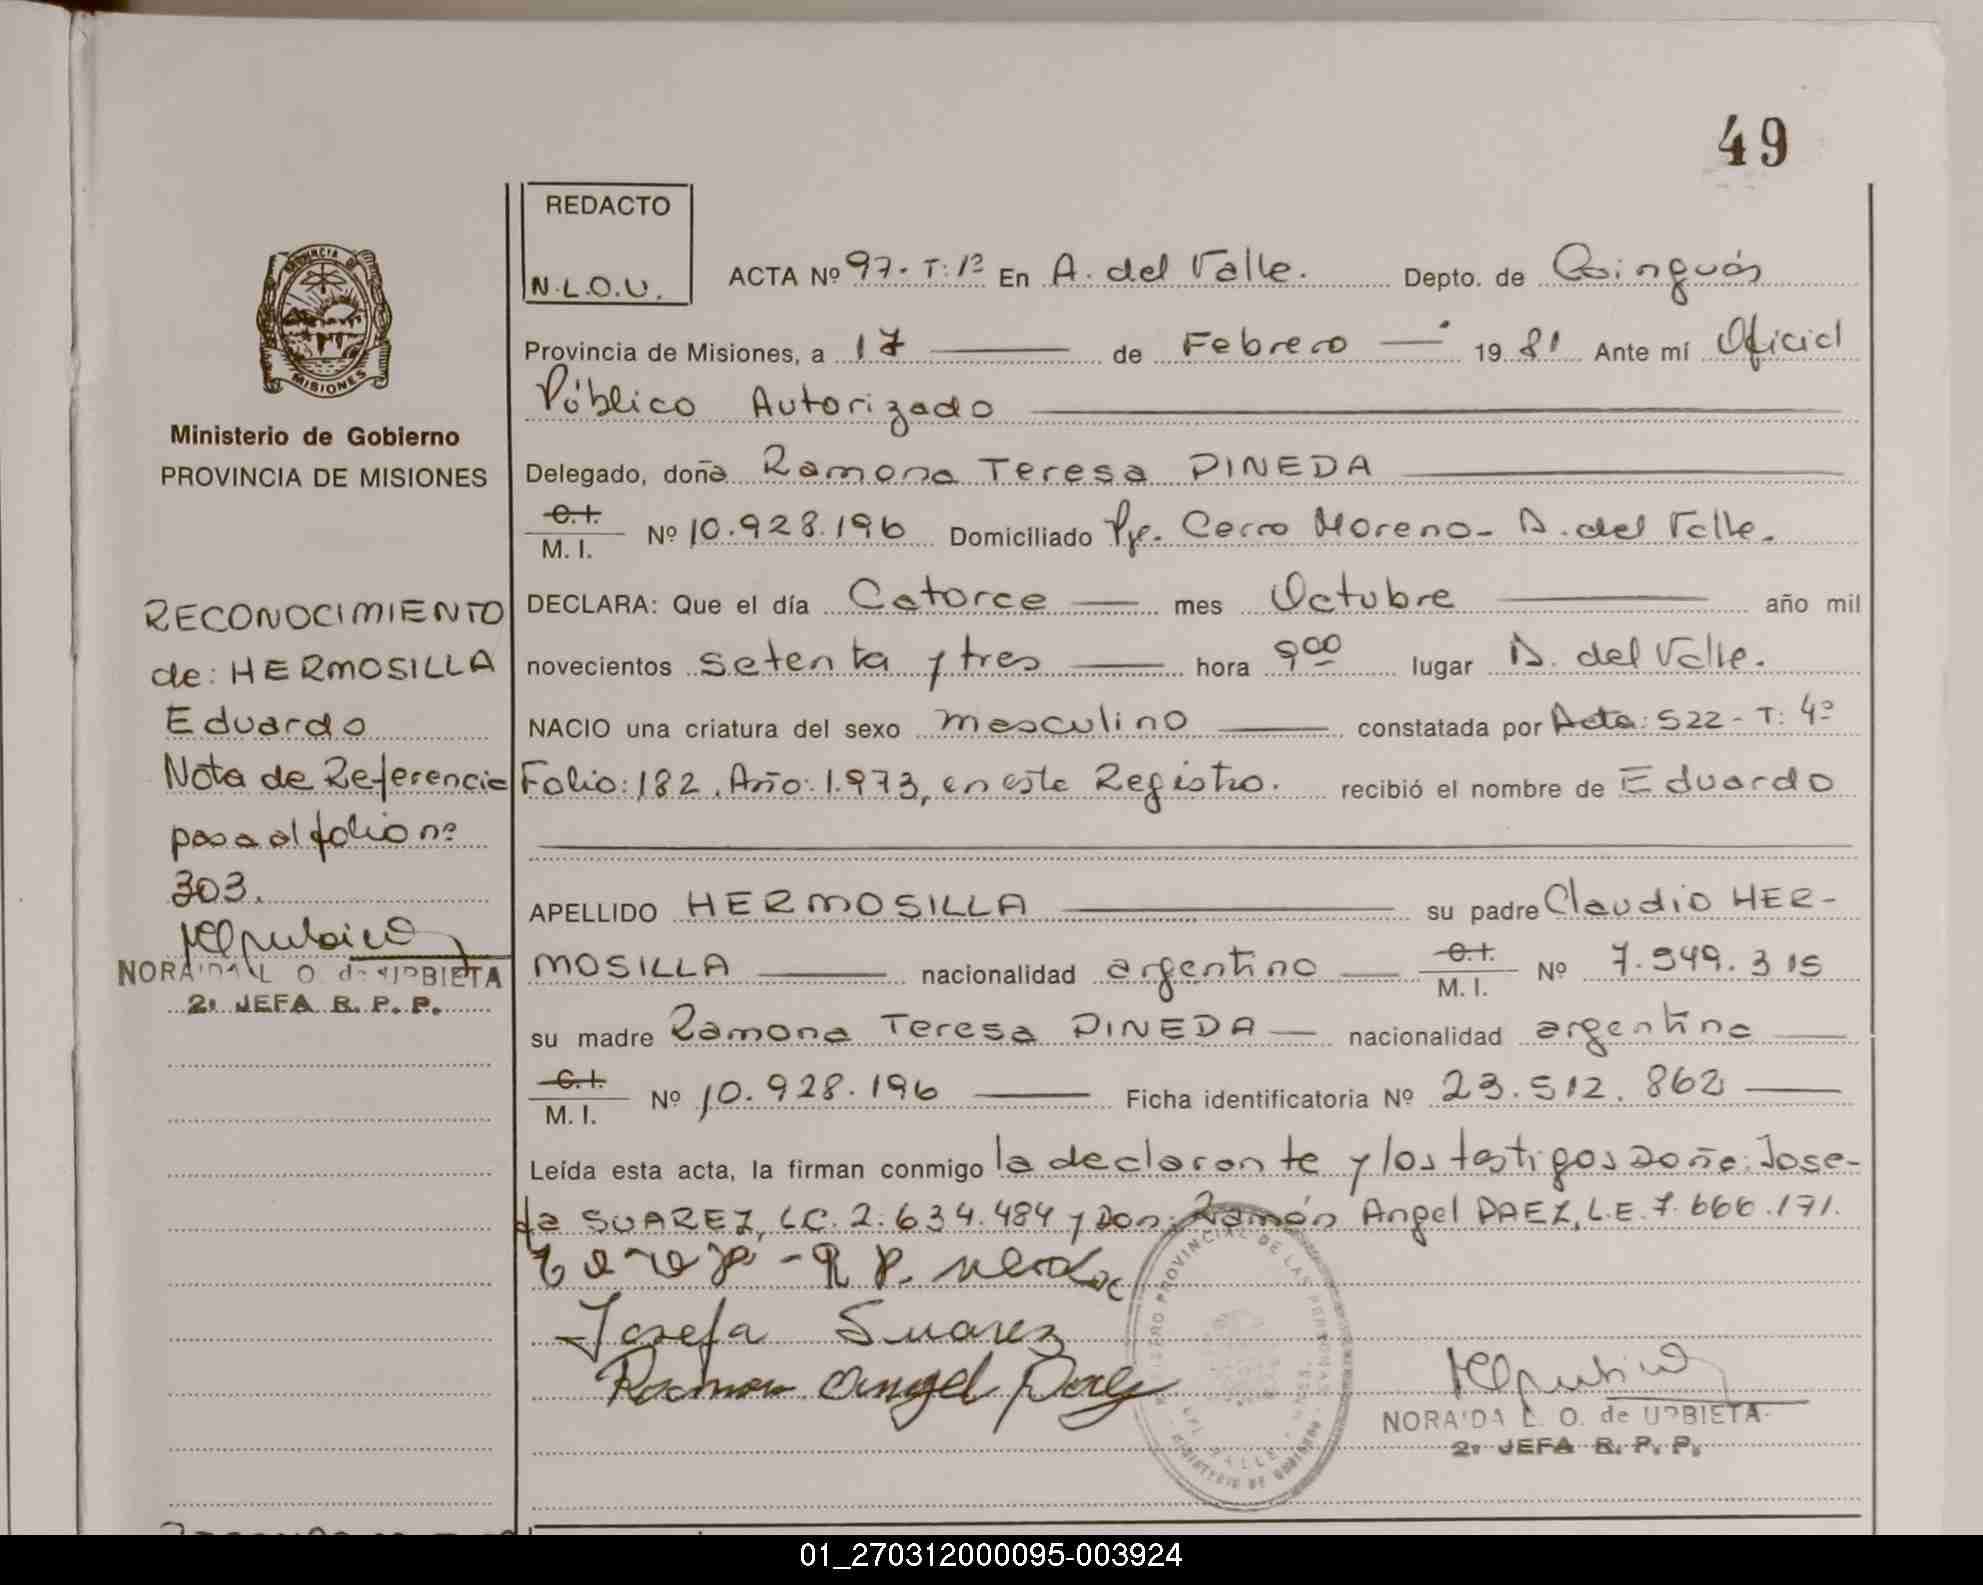 49
REDACTO
N.L.O.U.
ACTA Nº 97. T: 1º En A. del Valle. Depto. de Cainguás
Provincia de Misiones, a 17 — de Febrero — 1981 Ante mí Oficial
Público Autorizado
Delegado, doña Ramona Teresa PINEDA
C.I.
M. I. Nº 10.928.196 Domiciliado Pje. Cerro Moreno - A. del Valle.
DECLARA: Que el día Catorce — mes Octubre — año mil
novecientos setenta y tres — hora 9⁰⁰ lugar A. del Valle.
NACIO una criatura del sexo masculino — constatada por Acta: 522 - T: 4º
Folio: 182. Año: 1.973, en este Registro. recibió el nombre de Eduardo
APELLIDO HERMOSILLA — su padre Claudio HER-
MOSILLA — nacionalidad argentino — C.I. M. I. Nº 7.549.315
su madre Ramona Teresa PINEDA — nacionalidad argentina —
C.I.
M. I. Nº 10.928.196 — Ficha identificatoria Nº 23.512.862 —
Leída esta acta, la firman conmigo la declarante y los testigos Doña: Jose-
fa SUAREZ, L.C. 2.634.484 y Don: Ramón Angel PAEZ, L.E. 7.666.171.
Josefa Suarez
Ramon Angel Paez
NORAIDA L. O. de URBIETA
2ª JEFA R. P. P.
PROVINCIA DE
MISIONES
Ministerio de Gobierno
PROVINCIA DE MISIONES
RECONOCIMIENTO
de: HERMOSILLA
Eduardo
Nota de Referencia
pasa al folio nº
303.
NORAIDA L. O. de URBIETA
2ª JEFA R. P. P.
REGISTRO PROVINCIAL DE LAS PERSONAS
MINISTERIO DE GOBIERNO
01_270312000095-003924